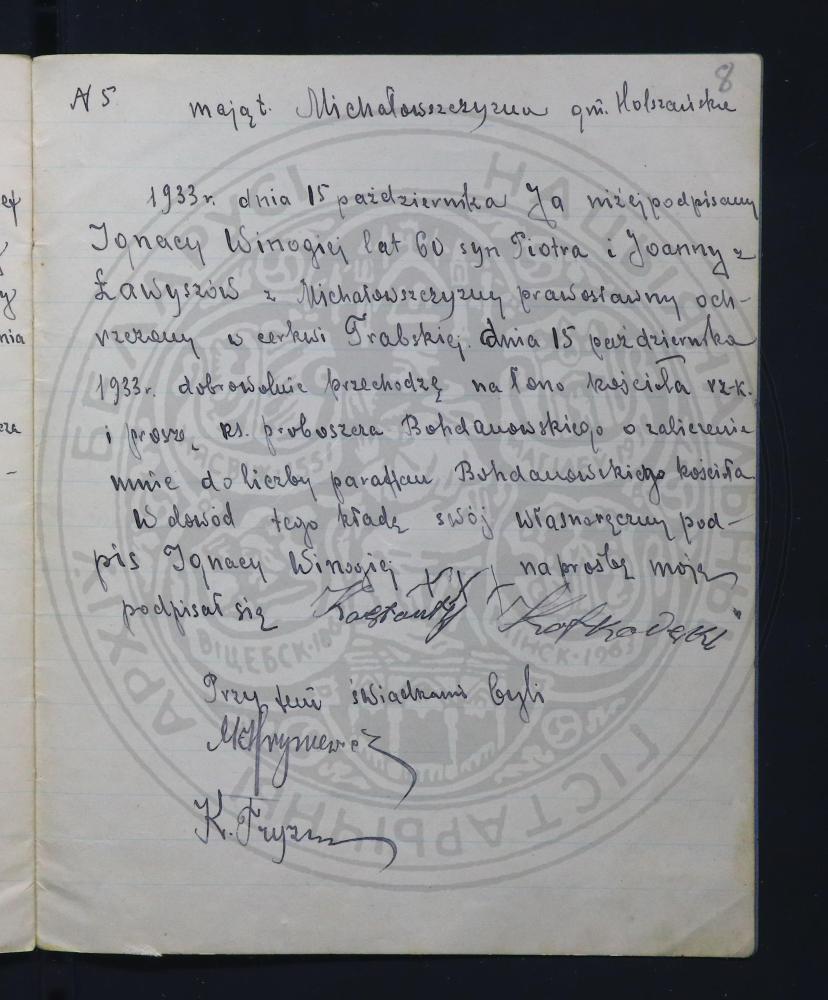 8
N 5 mająt. Michałowszczyzna gm. Holszańska
1933 r. dnia 15 października Ja niżej podpisany
Ignacy Winogiej lat 60 syn Piotra i Joanny z
Ławyszów z Michałowszczyzny prawosławny och-
rzczony w cerkwi Trabskiej. dnia 15 października
1933 r. dobrowolnie przechodzę na łono kościoła rz-k.
i proszę ks. proboszcza Bohdanowskiego o zaliczenie
mnie do liczby parafjan Bohdanowskiego kościoła
W dowód tego kładę swój własnoręczny pod-
pis Ignacy Winogiej XXX na prośbę moję
podpisał się Konstanty
Przy tem świadkami byli
K.
НАЦЫЯНАЛЬНЫ ГІСТАРЫЧНЫ АРХІЎ БЕЛАРУСІ